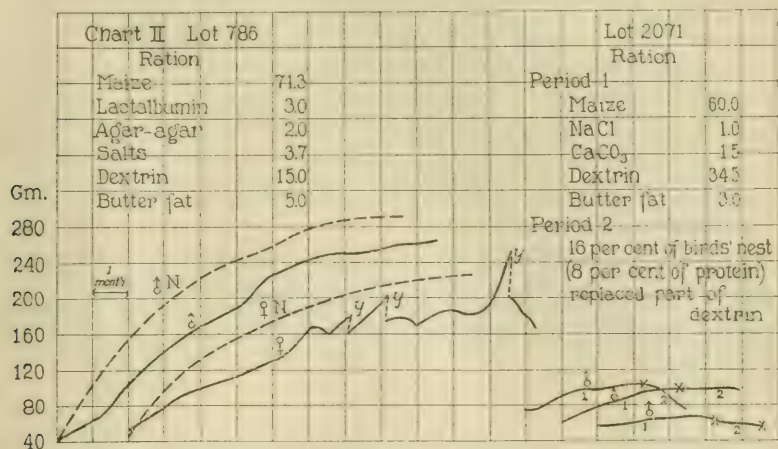 Chart II Lot 786
Ration
Maize 71.3
Lactalbumin 3.0
Agar-agar 2.0
Salts 3.7
Dextrin 15.0
Butter fat 5.0
Lot 2071
Ration
Period 1
Maize 60.0
NaCl 1.0
CaCO₃ 1.5
Dextrin 34.5
Butter fat 3.0
Period 2
16 per cent of birds' nest
(8 per cent of protein)
replaced part of
dextrin
Gm.
280
240
200
160
120
80
40
1
month
♂ N
♂
♀ N
♀
y
y
y
♂
1
♂
1
2
2
♂
1
2